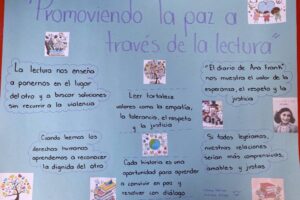 "Promoviendo la paz a
través de la lectura"
La lectura nos enseña
a ponernos en el lugar
del otro y a buscar soluciones
sin recurrir a la violencia
Leer fortalece
valores como la empatía,
la tolerancia, el respeto
y la justicia
"El diario de Ana Frank"
nos muestra el valor de la
esperanza, el respeto y la
justicia
Cuando leemos los
derechos humanos
aprendemos a reconocer
la dignidad del otro
Cada historia es una
oportunidad para aprender
a convivir en paz y
resolver con diálogo
Si todos leyéramos,
nuestras relaciones
serían más comprensivas,
amables y justas